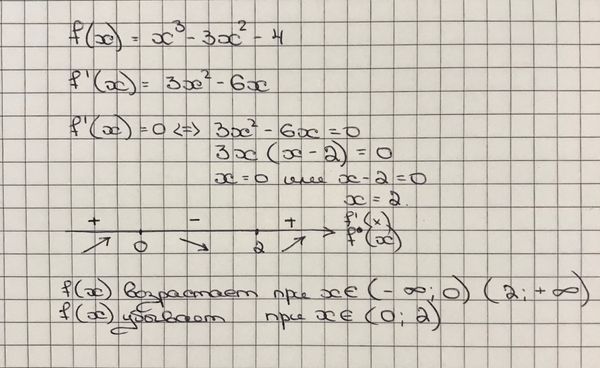 f(x) = x³ - 3x² - 4
f'(x) = 3x² - 6x
f'(x) = 0 <=> 3x² - 6x = 0
3x (x - 2) = 0
x = 0 или x - 2 = 0
x = 2.
+ - + f'(x)
0 2 f(x)
f(x) возрастает при x ∈ (-∞; 0) (2; +∞)
f(x) убывает при x ∈ (0; 2)